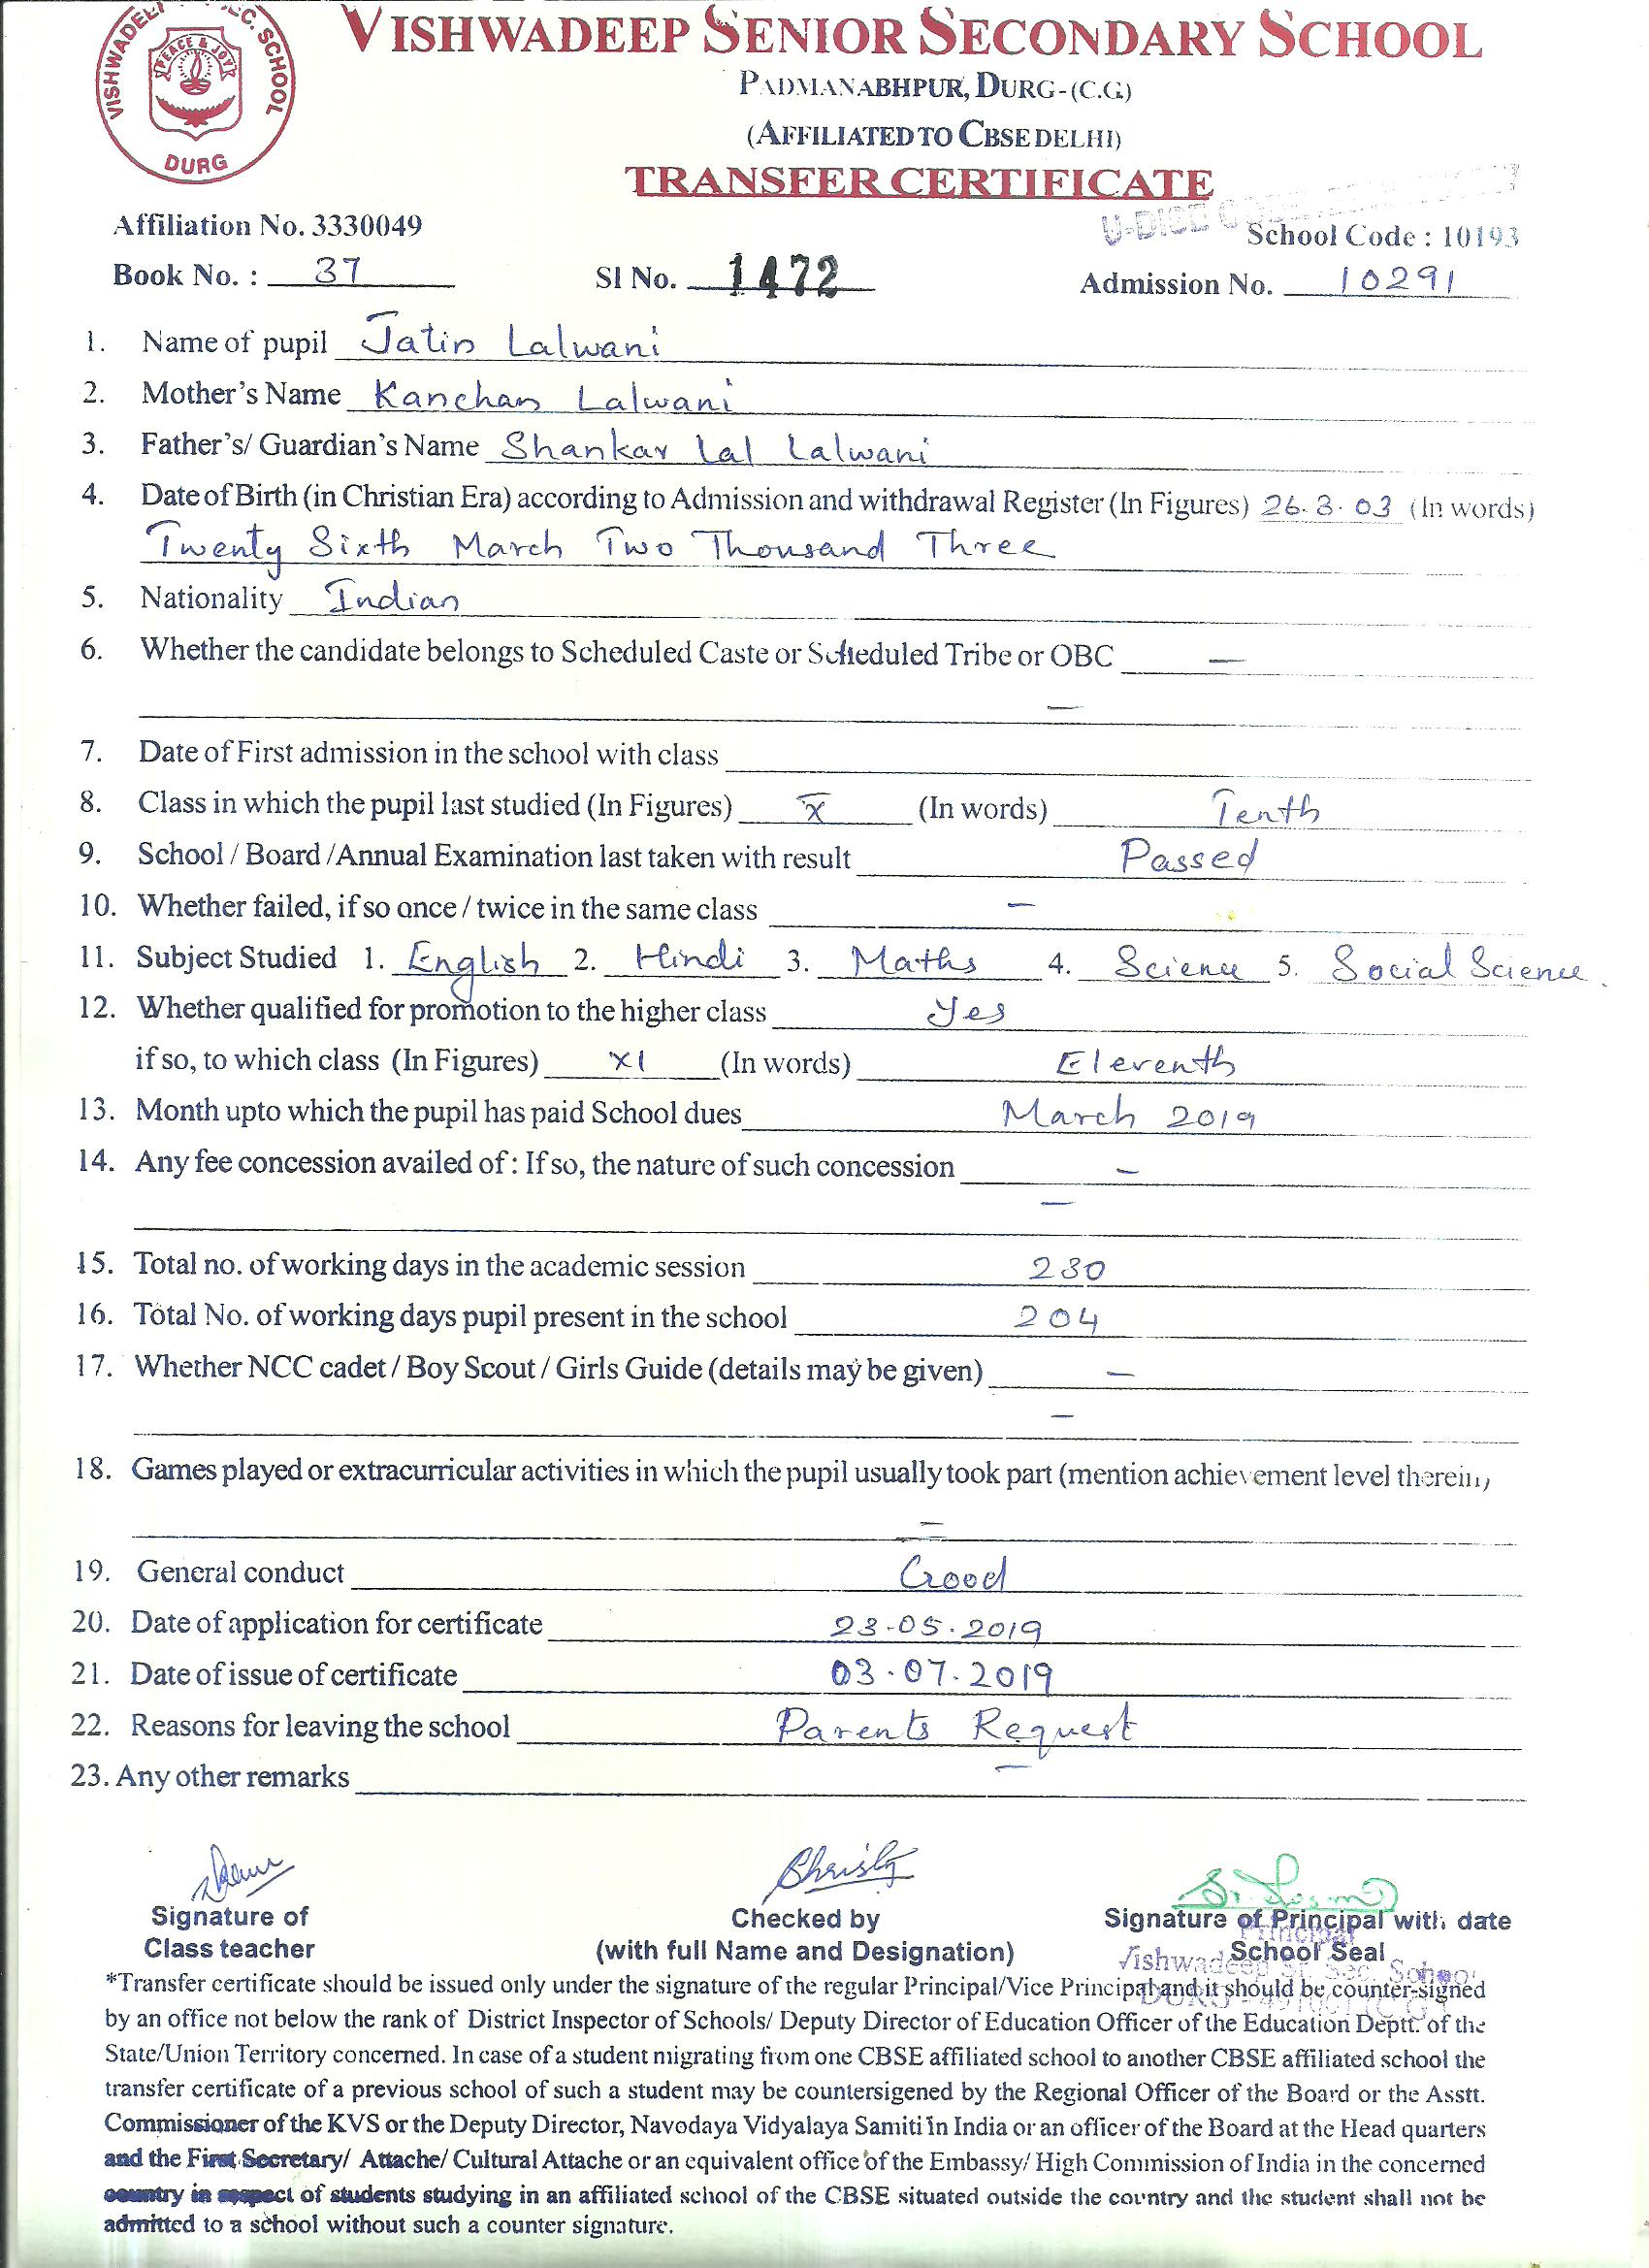 VISHWADEEP SEC. SCHOOL
PEACE & JOY
DURG
VISHWADEEP SENIOR SECONDARY SCHOOL
PADMANABHPUR, DURG-(C.G.)
(AFFILIATED TO CBSE DELHI)
TRANSFER CERTIFICATE
U-DISE CODE
Affiliation No. 3330049 School Code : 10193
Book No. : 37 Sl No. 1472 Admission No. 10291
1. Name of pupil Jatin Lalwani
2. Mother's Name Kanchan Lalwani
3. Father's/ Guardian's Name Shankar Lal Lalwani
4. Date of Birth (in Christian Era) according to Admission and withdrawal Register (In Figures) 26.3.03 (In words)
Twenty Sixth March Two Thousand Three
5. Nationality Indian
6. Whether the candidate belongs to Scheduled Caste or Scheduled Tribe or OBC —
—
7. Date of First admission in the school with class
8. Class in which the pupil last studied (In Figures) X (In words) Tenth
9. School / Board /Annual Examination last taken with result Passed
10. Whether failed, if so once / twice in the same class —
11. Subject Studied 1. English 2. Hindi 3. Maths 4. Science 5. Social Science.
12. Whether qualified for promotion to the higher class Yes
if so, to which class (In Figures) XI (In words) Eleventh
13. Month upto which the pupil has paid School dues March 2019
14. Any fee concession availed of : If so, the nature of such concession —
—
15. Total no. of working days in the academic session 230
16. Total No. of working days pupil present in the school 204
17. Whether NCC cadet / Boy Scout / Girls Guide (details may be given) —
—
18. Games played or extracurricular activities in which the pupil usually took part (mention achievement level therein)
—
19. General conduct Good
20. Date of application for certificate 23-05.2019
21. Date of issue of certificate 03.07.2019
22. Reasons for leaving the school Parents Request
23. Any other remarks —
Christy
Signature of Checked by Signature of Principal with date
Class teacher (with full Name and Designation) School Seal
Principal
Vishwadeep Sr. Sec. School
*Transfer certificate should be issued only under the signature of the regular Principal/Vice Principal and it should be counter-signed
by an office not below the rank of District Inspector of Schools/ Deputy Director of Education Officer of the Education Deptt. of the
State/Union Territory concerned. In case of a student migrating from one CBSE affiliated school to another CBSE affiliated school the
transfer certificate of a previous school of such a student may be countersigned by the Regional Officer of the Board or the Asstt.
Commissioner of the KVS or the Deputy Director, Navodaya Vidyalaya Samiti in India or an officer of the Board at the Head quarters
and the First Secretary/ Attache/ Cultural Attache or an equivalent office of the Embassy/ High Commission of India in the concerned
country in respect of students studying in an affiliated school of the CBSE situated outside the country and the student shall not be
admitted to a school without such a counter signature.